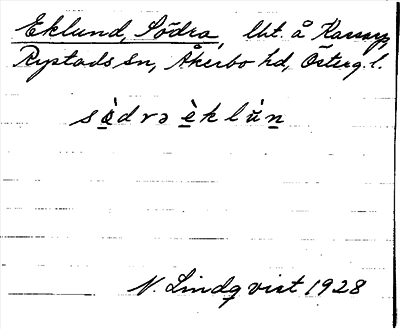 Eklund, Södra, lht. å Karsnys,
Rystads sn, Åkerbo hd, Österg. l.
sø̀drə èklùn
N. Lindqvist 1928